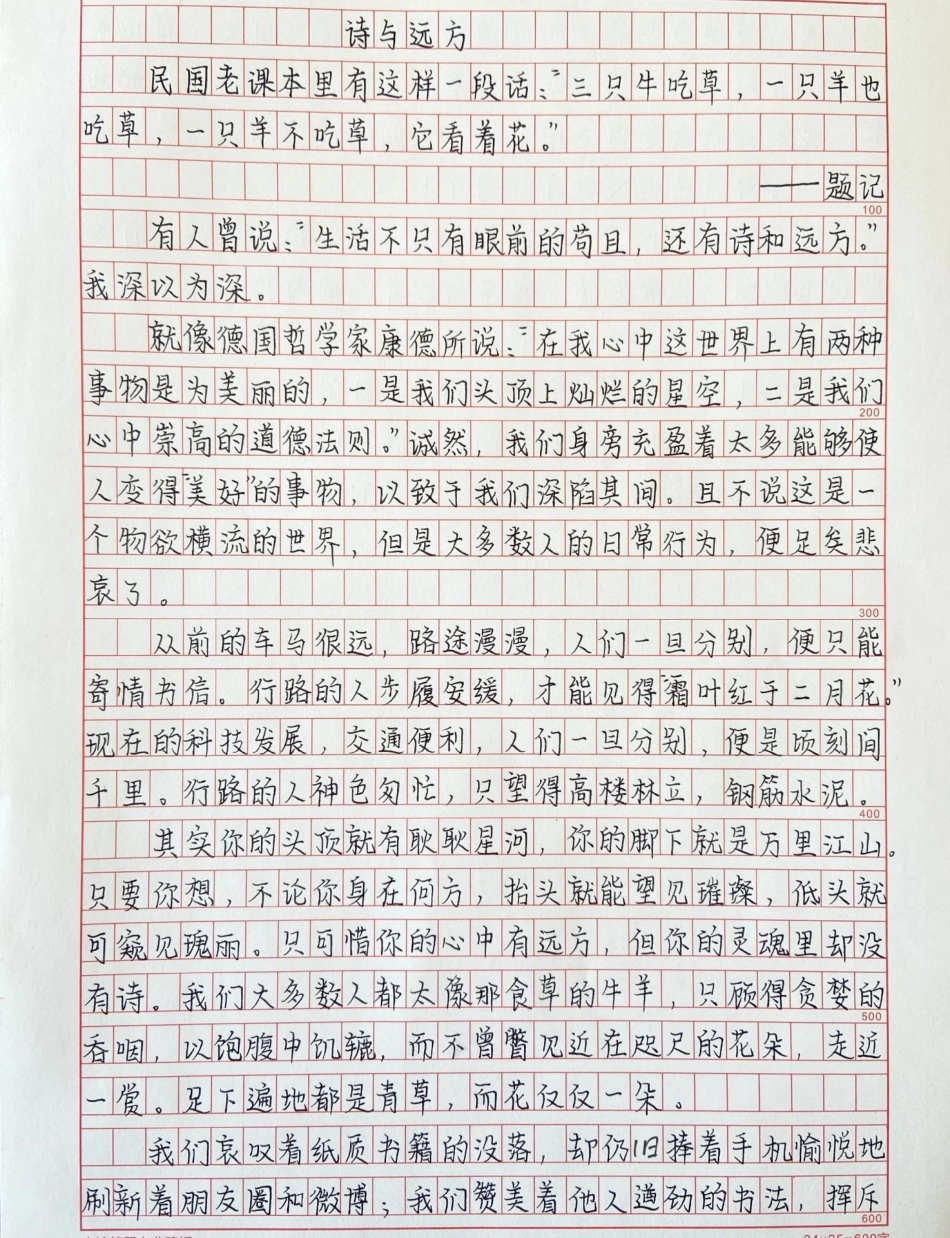 诗与远方
民国老课本里有这样一段话："三只牛吃草，一只羊也
吃草，一只羊不吃草，它看着花。"
——题记
100
有人曾说："生活不只有眼前的苟且，还有诗和远方。"
我深以为深。
就像德国哲学家康德所说："在我心中这世界上有两种
事物是为美丽的，一是我们头顶上灿烂的星空，二是我们
200
心中崇高的道德法则。"诚然，我们身旁充盈着太多能够使
人变得"美好"的事物，以致于我们深陷其间。且不说这是一
个物欲横流的世界，但是大多数人的日常行为，便足矣悲
哀了。
300
从前的车马很远，路途漫漫，人们一旦分别，便只能
寄情书信。行路的人步履安缓，才能见得"霜叶红于二月花。"
现在的科技发展，交通便利，人们一旦分别，便是顷刻间
千里。行路的人神色匆忙，只望得高楼林立，钢筋水泥。
400
其实你的头顶就有耿耿星河，你的脚下就是万里江山。
只要你想，不论你身在何方，抬头就能望见璀璨，低头就
可窥见瑰丽。只可惜你的心中有远方，但你的灵魂里却没
有诗。我们大多数人都太像那食草的牛羊，只顾得贪婪的
500
吞咽，以饱腹中饥辘，而不曾瞥见近在咫尺的花朵，走近
一赏。足下遍地都是青草，而花仅仅一朵。
我们哀叹着纸质书籍的没落，却仍旧捧着手机愉悦地
刷新着朋友圈和微博；我们赞美着他人遒劲的书法，挥斥
600